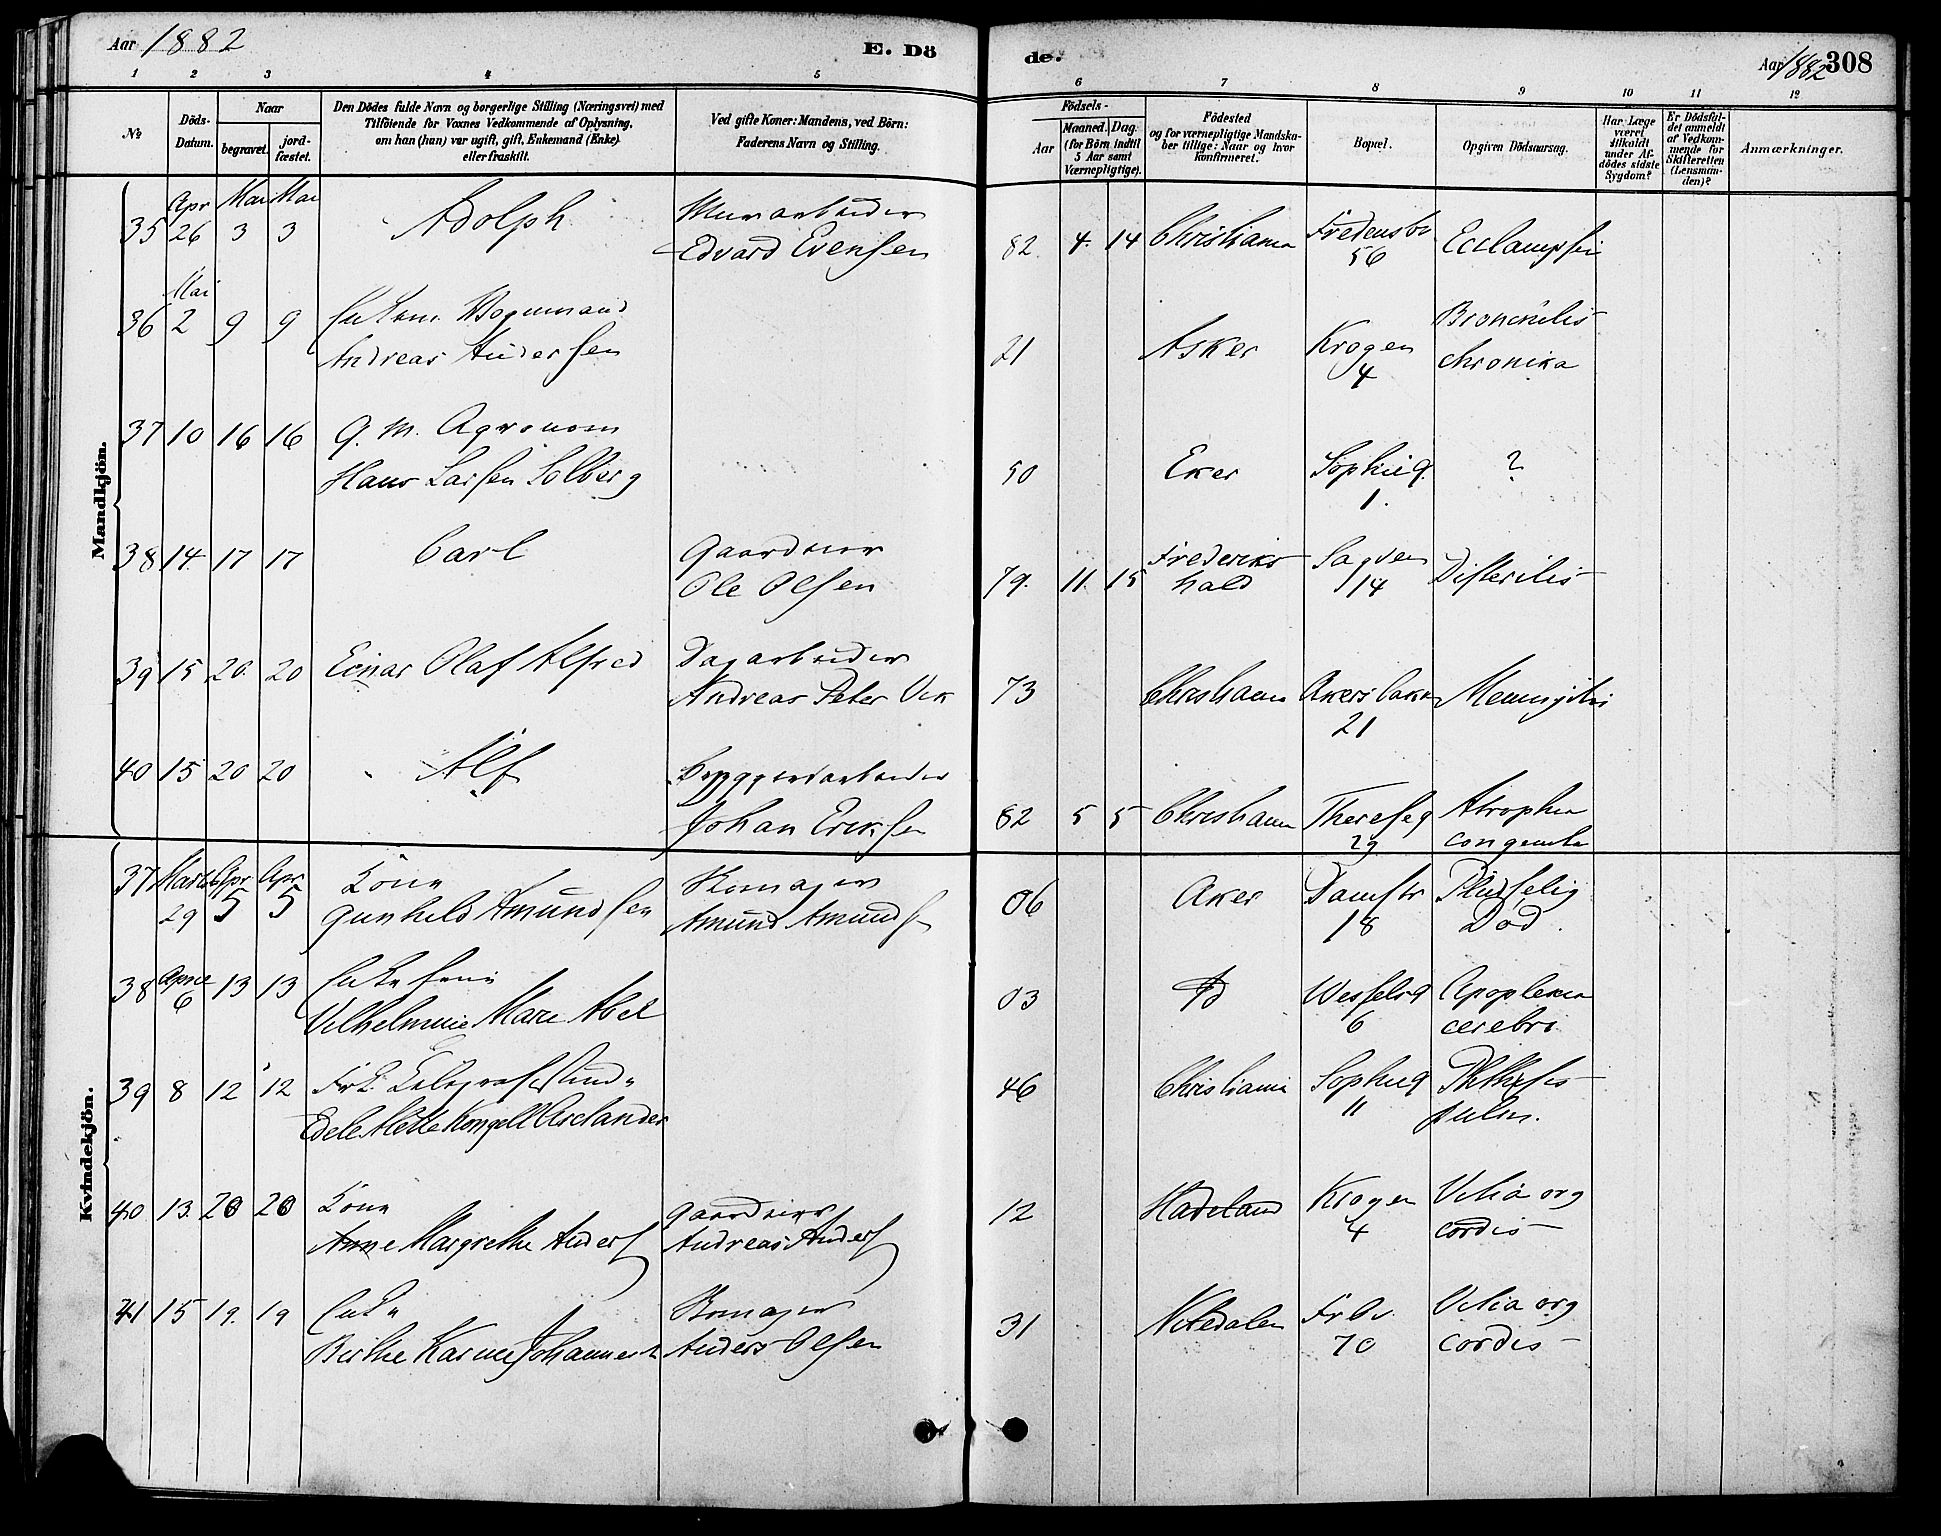 Aar 1882
E. Dö
de.
Aar 1882 308
1 2 3 4 5
6 7 8 9 10 11 12
No
Döds-
Datum.
Naar
begravet.
jord-
fæstet.
Den Dödes fulde Navn og borgerlige Stilling (Næringsvei) med
Tilföiende for Voxnes Vedkommende af Oplysning,
om han (hun) var ugift, gift, Enkemand (Enke)
eller fraskilt.
Ved gifte Koner: Mandens, ved Börn:
Faderens Navn og Stilling.
Födsels-
Aar
Maaned. Dag.
(for Börn indtil
5 Aar samt
Værnepligtige).
Födested
og for værnepligtige Mandska-
ber tillige: Naar og hvor
konfirmeret.
Bopæl.
Opgiven Dödsaarsag.
Har Læge
været
tilkaldt
under Af-
dödes sidste
Sygdom?
Er Dödsfal-
det anmeldt
af Vedkom-
mende for
Skifteretten
(Lensman-
den)?
Anmærkninger.
Mandkjön.
Apr Mai Mai
35 26 3 3 Adolph
Murarbeider
Edvard Evensen
82. 4. 14 Christiania
56
Mai
36 2 9 9
Andreas Andersen
21 Asker Krogen
4
chronika
37 10 16 16 G. M. Agronom
Hans Larsen Solberg
50 Eker Sophieg.
1.
?
38 14 17 17 Carl
Ole Olsen
79. 11. 15 Frederiks
hald
Sagven
14
Difteritis
39 15 20. 20 Einar Olaf Alfred
Dagarbeider
Andreas Peter Vik
73 Christiania
21
40 15 20 20 Alf
Bryggeriarbeider
Johan Eriksen
82 5 5 Christiania Thereseg
29
Atrophia
congenita
Kvindekjön.
37 Marts Apr Apr
29 5 5
Kone
Gunhild Amundsen
Amund Amunds
06 Aker Damstr
18
Pludselig
Död.
38 April
6 13 13
Vilhelmine Marie Abel
03 Wesselsg
6
Apoplexia
cerebri
39 8 12 12
46 Christiania Sophieg
11
Phthisis
pulm.
40 13. 20 20 Kone
Anne Margrethe Anders
Andreas Anders
12 Hadeland Krogen
4
Vitia org
cordis
41 15 19. 19 Enke
Birthe Karine Johannesd.
Anders Olsen
31 Nitedalen
70
Vitia org
cordis